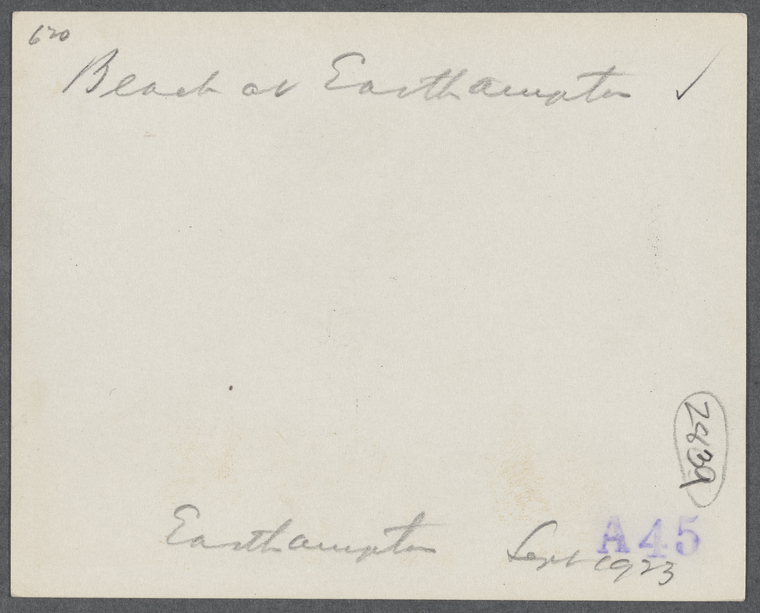 620
Beach at Easthampton ✓
2839
A45
Easthampton Sept 1923